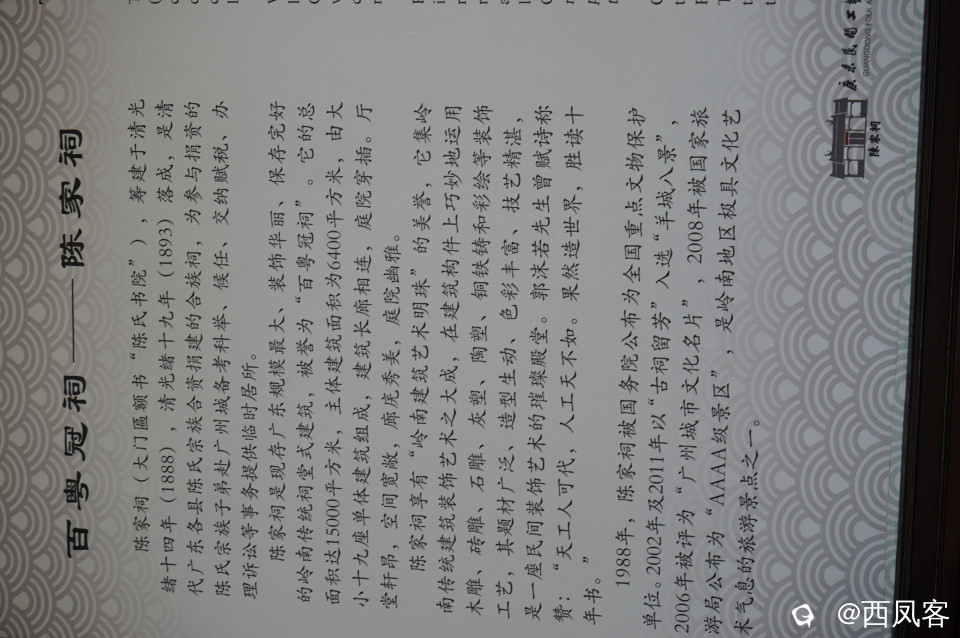 百粤冠祠——陈家祠
陈家祠（大门匾额书“陈氏书院”），筹建于清光
绪十四年（1888），清光绪十九年（1893）落成，是清
代广东各县陈氏宗族合资捐建的合族祠，为参与捐资的
陈氏宗族子弟赴广州城备考科举、候任、交纳赋税、办
理诉讼等事务提供临时居所。
陈家祠是现存广东规模最大、装饰华丽、保存完好
的岭南传统祠堂式建筑，被誉为“百粤冠祠”。它的总
面积达15000平方米，主体建筑面积为6400平方米，由大
小十九座单体建筑组成，建筑长廊相连，庭院穿插。厅
堂轩昂，空间宽敞，廊庑秀美，庭院幽雅。
陈家祠享有“岭南建筑艺术明珠”的美誉，它集岭
南传统建筑装饰艺术之大成，在建筑构件上巧妙地运用
木雕、砖雕、石雕、灰塑、陶塑、铜铁铸和彩绘等装饰
工艺，其题材广泛、造型生动、色彩丰富、技艺精湛，
是一座民间装饰艺术的璀璨殿堂。郭沫若先生曾赋诗称
赞：“天工人可代，人工天不如。果然造世界，胜读十
年书。”
1988年，陈家祠被国务院公布为全国重点文物保护
单位。2002年及2011年以“古祠留芳”入选“羊城八景”，
2006年被评为“广州城市文化名片”，2008年被国家旅
游局公布为“AAAA级景区”，是岭南地区极具文化艺
术气息的旅游景点之一。
陈家祠
广东民间工
GUANGDONG FOLK A
@西凤客